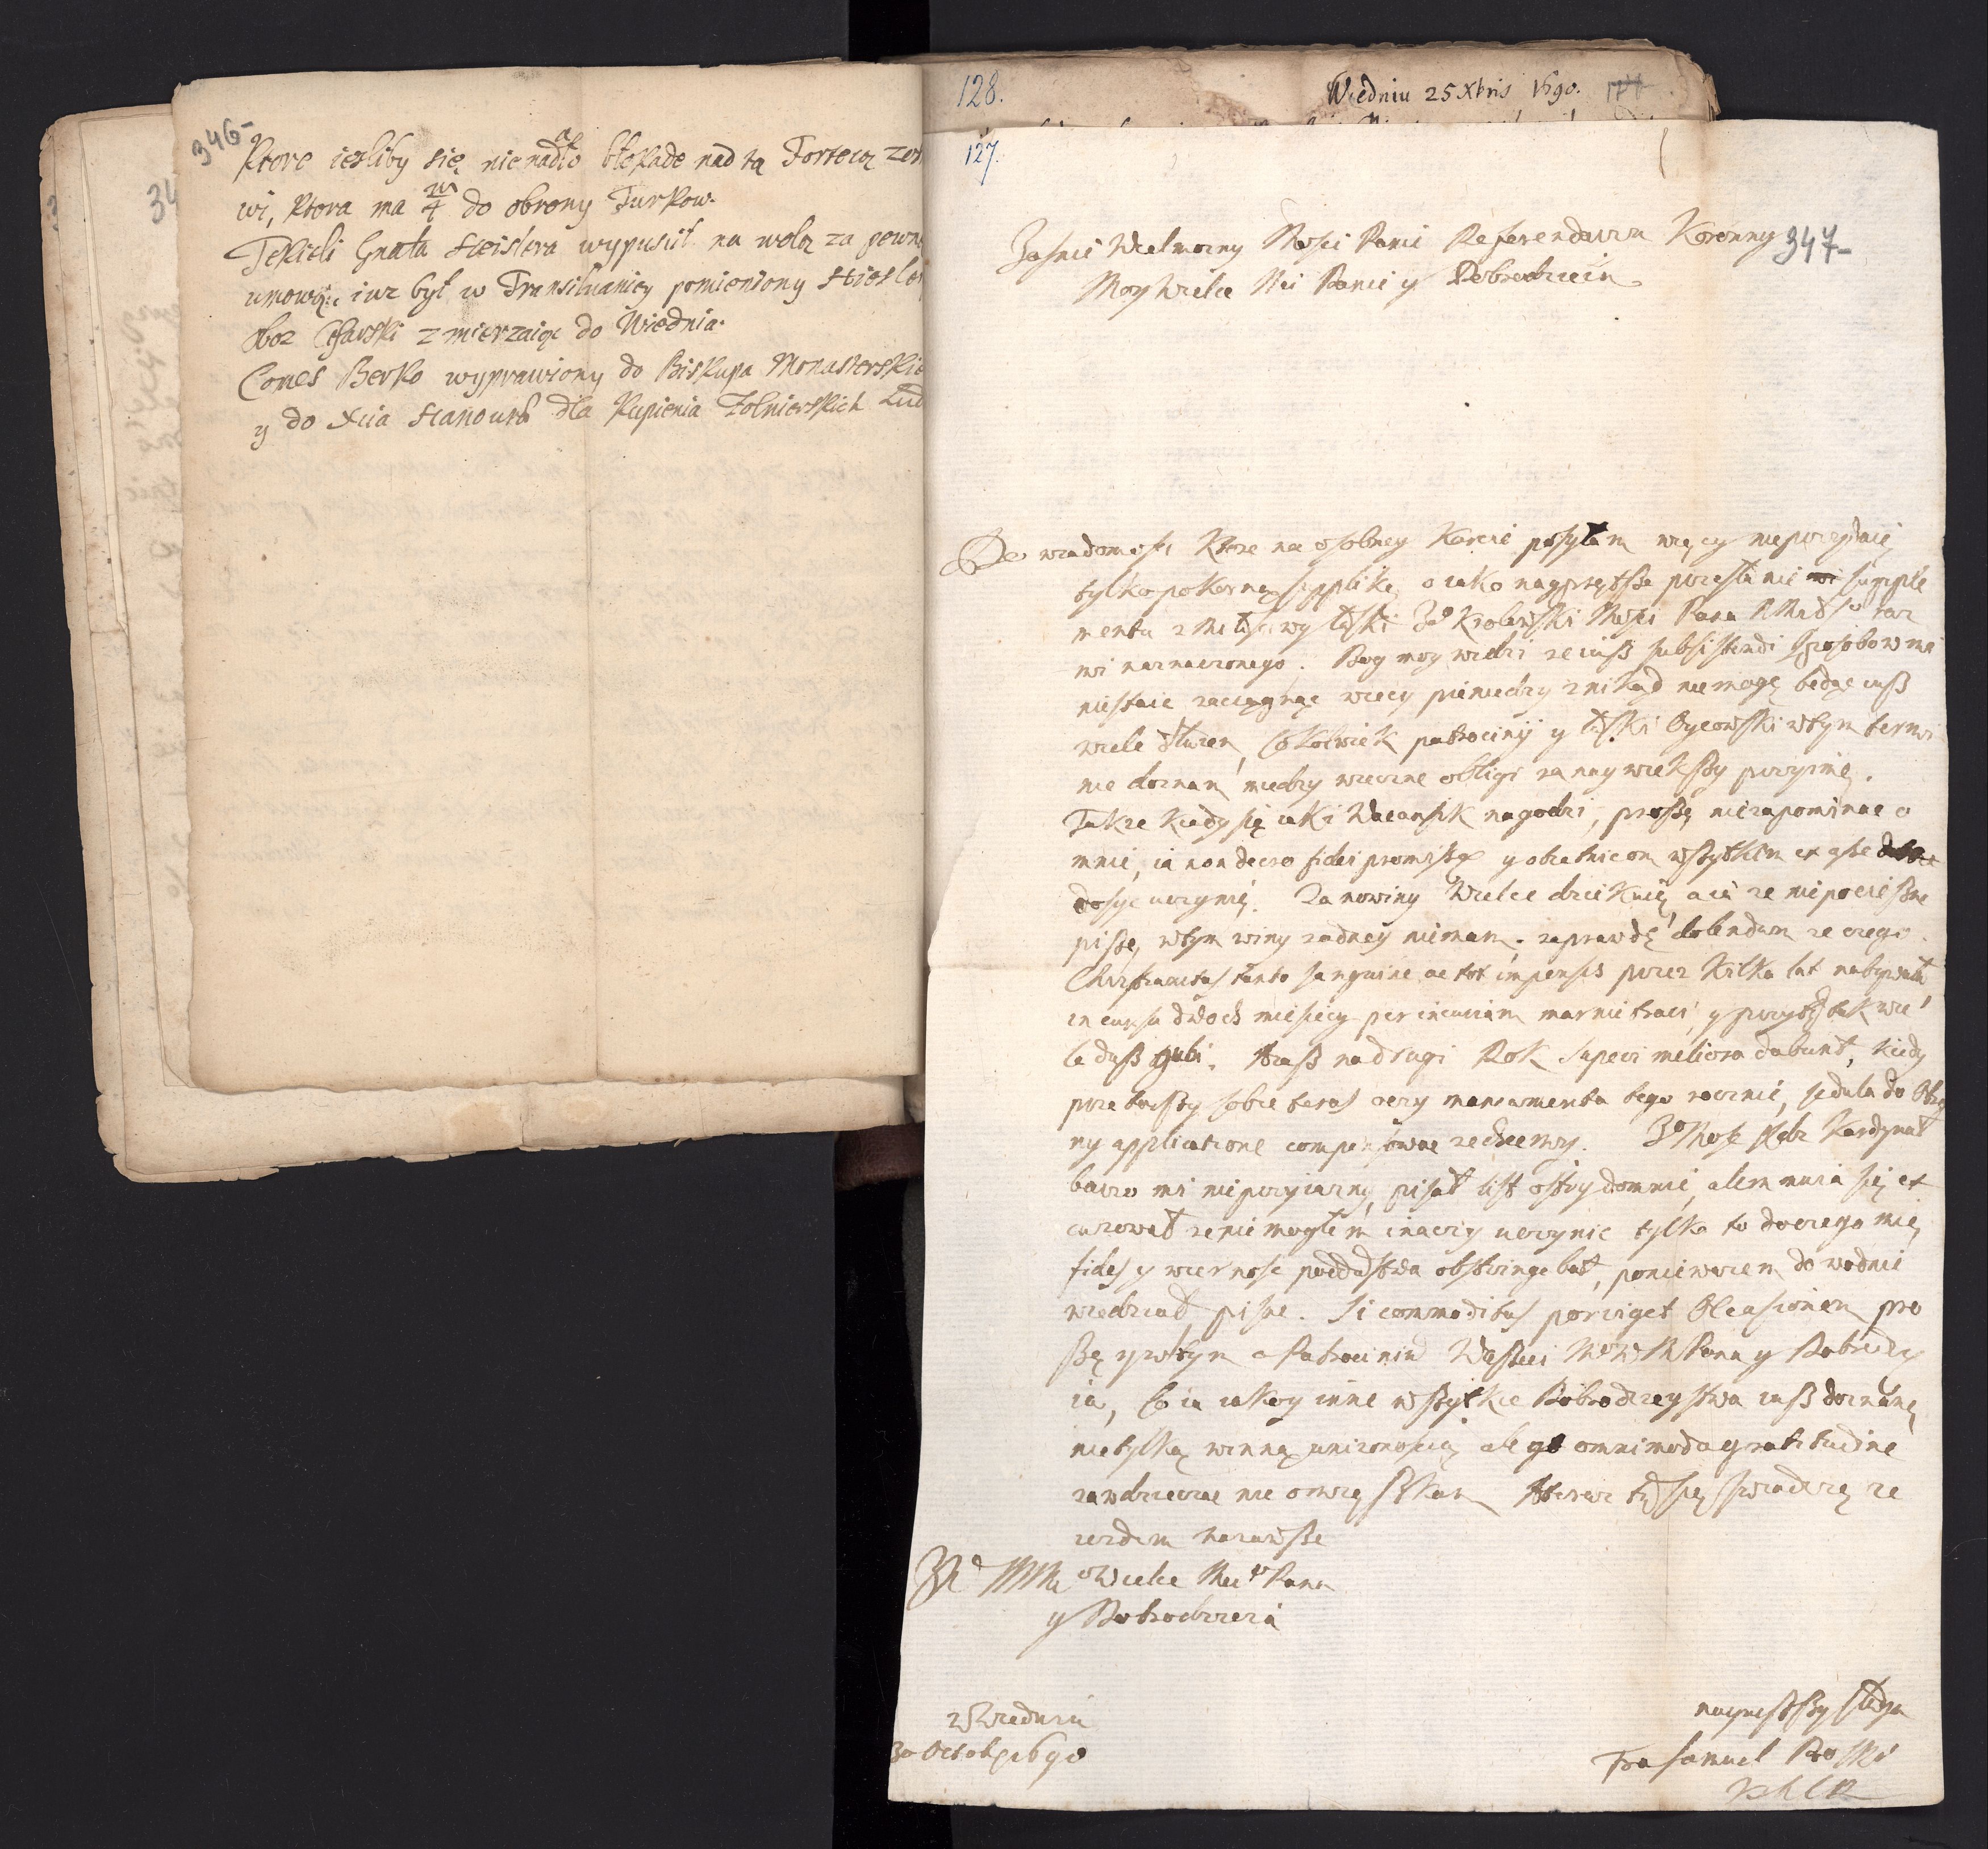 346-
Ktore iesliby się nienadało blokade nad tą Fortecą
wi, Ktora ma m/4 do obrony Turkow.
Tekieli Gnała Heislera wypuścił na wolą za pewną
umową iuz był w Transilvaniey pomieniony
oboz Cesarski zmierzaiąc do Wiednia.
Comes Berko wyprawiony do Biskupa Monasterskie
y do Xcia Hanowra dla Kupienia Zolnierskich Lud
128.
Wiedniu 25 Xbris 1690.
127.
347-
Jasnie Wielmozny Mosci Panie Referendarzu Koronny
Moy Wielce Mci Panie y Dobrodzieiu
Do wiadomosci Ktore na osobney Karcie posyłam więcy nieprzydaię
tylko pokorną supplikę, o iako nayprętsze przesłanie supple
mentu z Miłosciwy łaski Jo Krolewski Mosci Pana
mi naznaczonego. Bog moy widzi ze iuß subsistendi sposobow mi
niestaie zaciągnąc wiecy pieniedzy znikąd niemogę bedąc iuß
wiele dłuzen, Cokolwiek patrociniy y łaski Oycowski wtym termi
nie doznam, miedzy wieczne obligi za naywiekszy przyimę.
Także kiedy się iaki Wacansik nagodzi, proszę niezapominac o
mnie, ia non deero fidei promissae y obietnicom wszytkim ex asse
dosyc uczynię. Za nowiny Wielce dziekuię, a iż ze niepocieszne
piszę, wtym winy zadney niemam. zaprawdę dolendum ze czego
Christianitas tanto sanguine ac tot impensis przez Kilka lat nabywała
in cursu dwoch miesięcy per incuriam marnie traci, y przytym tak wie
le dusz gubi. na drugi Rok Superi meliora dabunt, kiedy
sobie teraz tego rocznie, sedula do
ny applicatione compensowac zechcemy. Jo Mosc Xdz Kardynał
barzo mi nieprzyiazny, pisał list ostry domnie, alem mu się ex
cuzował ze nie mogłem inaczy uczynic tylko to doczego mię
fides y wiernosc poddanstwa obstringebat, poniewazem dowodnie
wiedział, pisac. Si commoditas porriget Occasionem pro
szę y wtym o Patrocinium Waszeci Mo W M Pana y Dobrodzie
ia, Co ia iako y inne wszytkie Dobrodzieystwa iuß doznane
nietylko winną unizonoscią ale omnimoda gratitudine
zawdzieczac nie omieszkam tym się swiadczę ze
iezdem nazawsze
Wielce Mci Pana
y Dobrodzieia
z Wiednia
30 Octobr 1690
nayniższy sługa
Fra Samuel